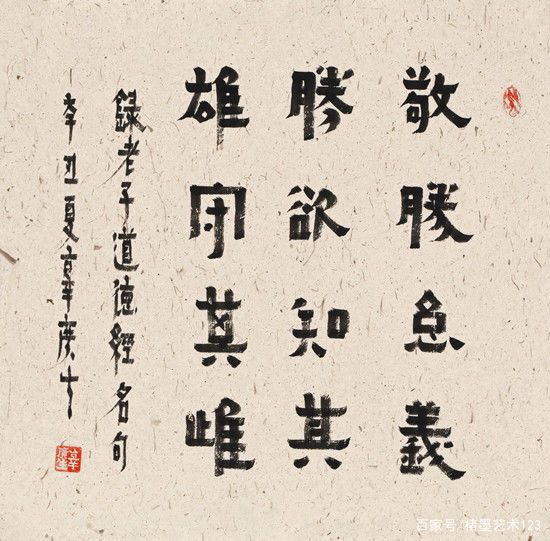 敬勝怠義
勝欲知其
雄守其雌
録老子道德經名句
辛丑夏
百家号/楮墨艺术123